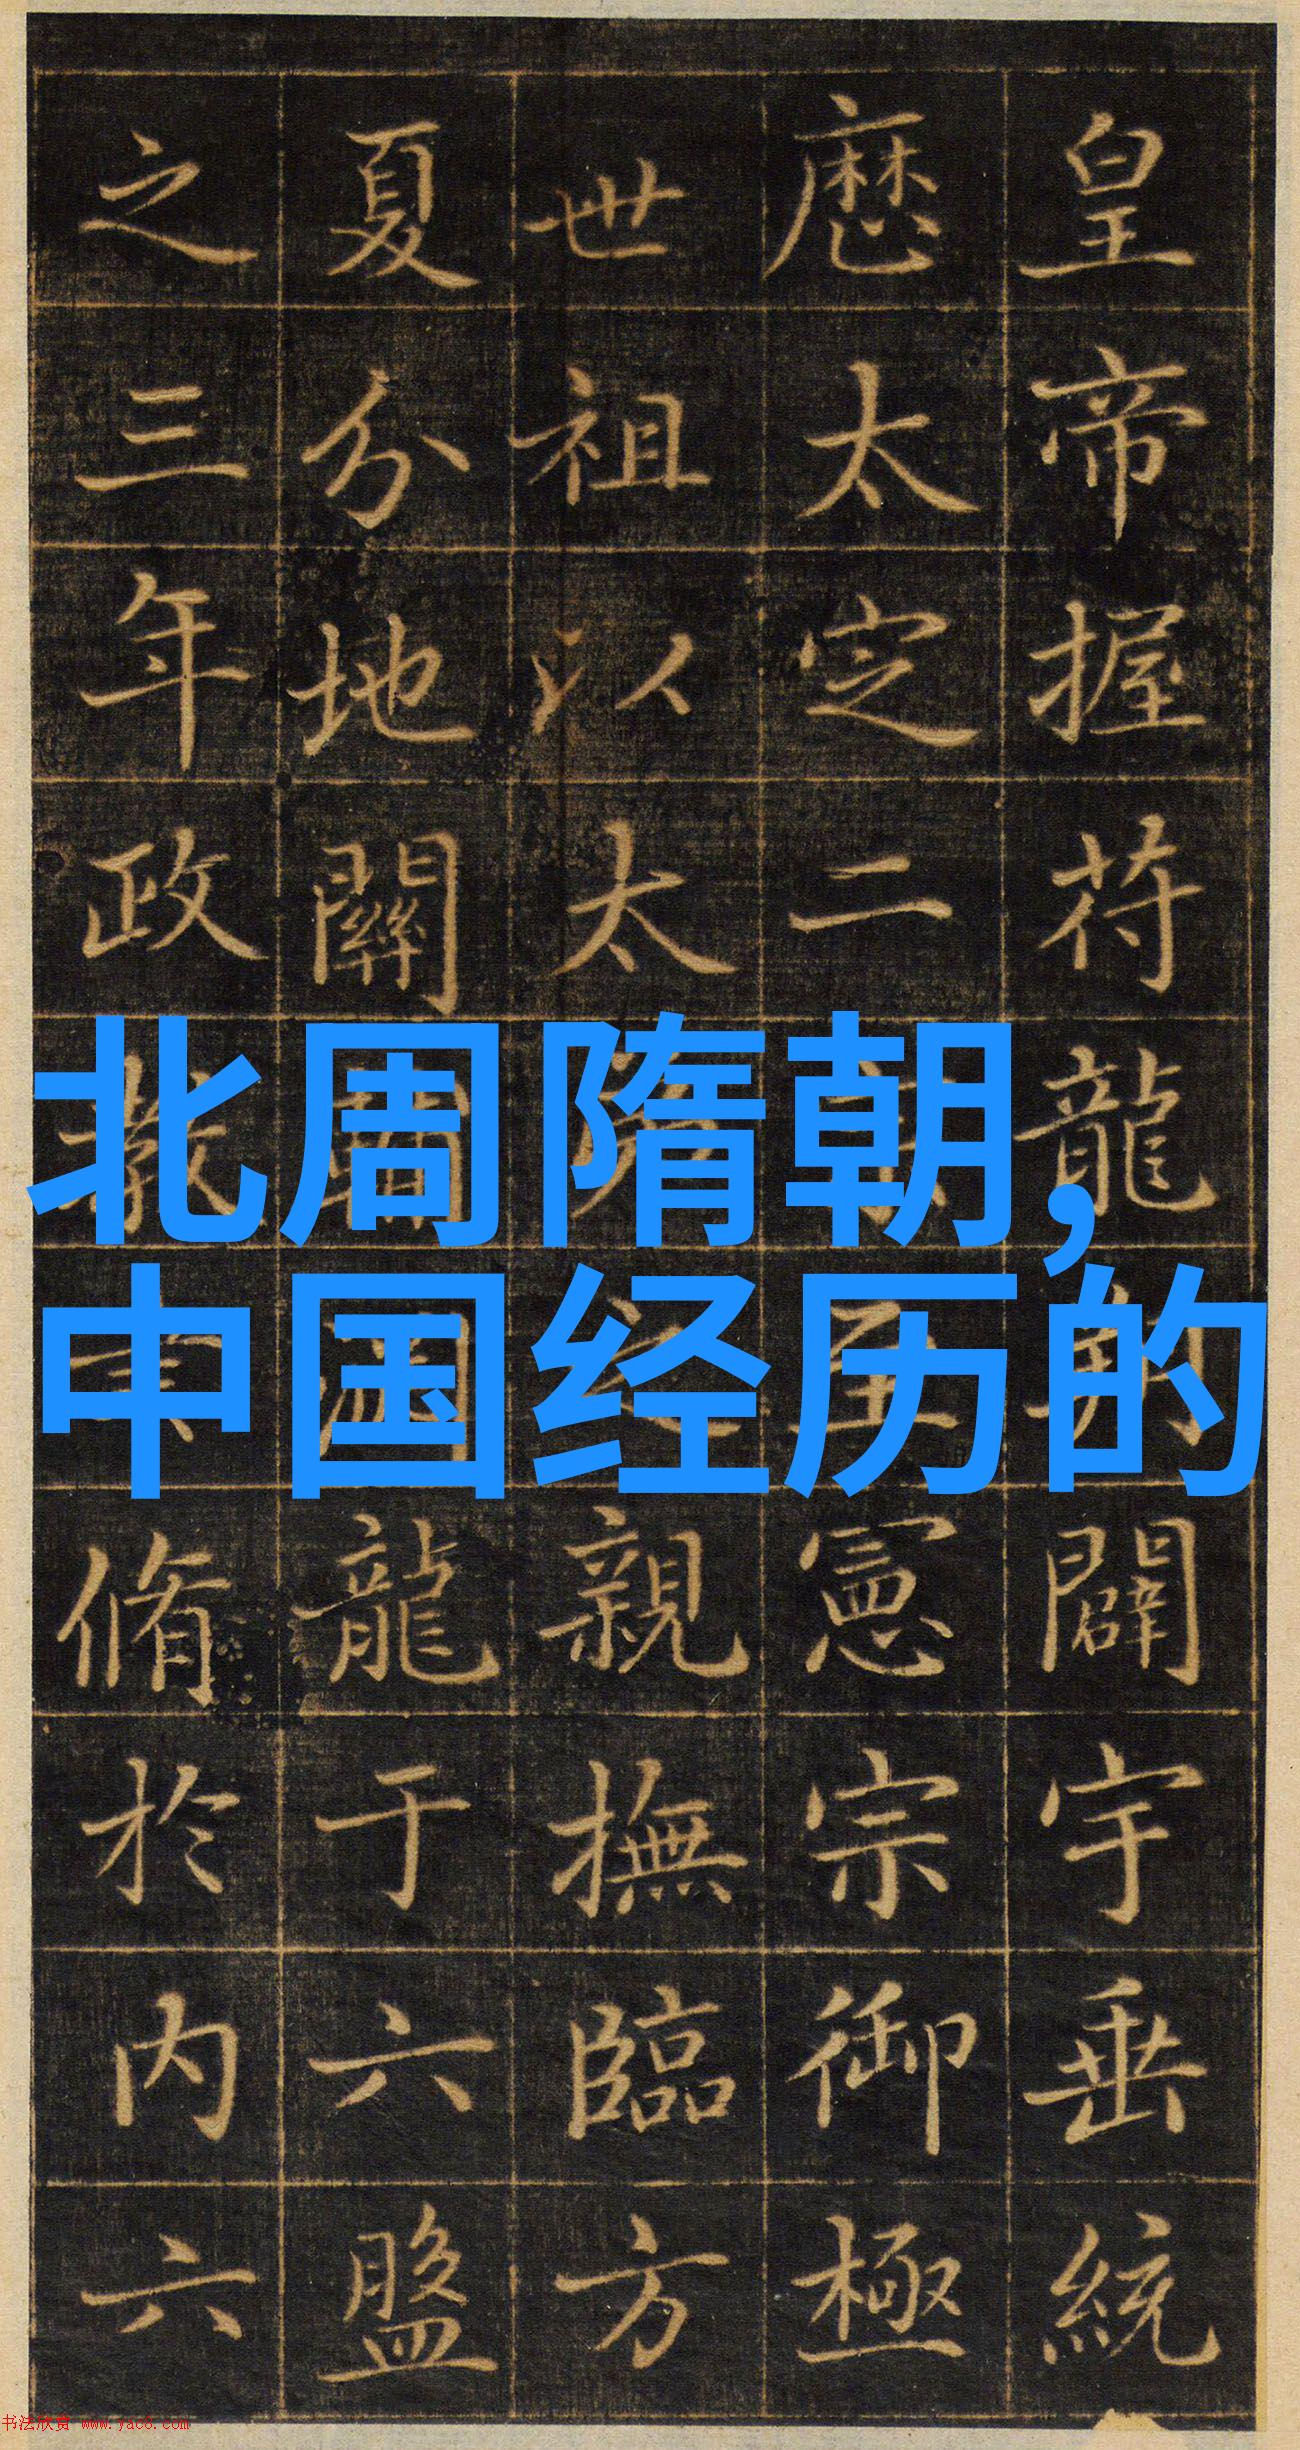 皇帝握符龍闢宇垂統
歷太定二至憲宗御極
世祖以太之親撫臨方
夏分地關龍于六盤
之三年政教脩於内六
北周隋朝,
中国经历的
书法欣赏 www.yac8.com